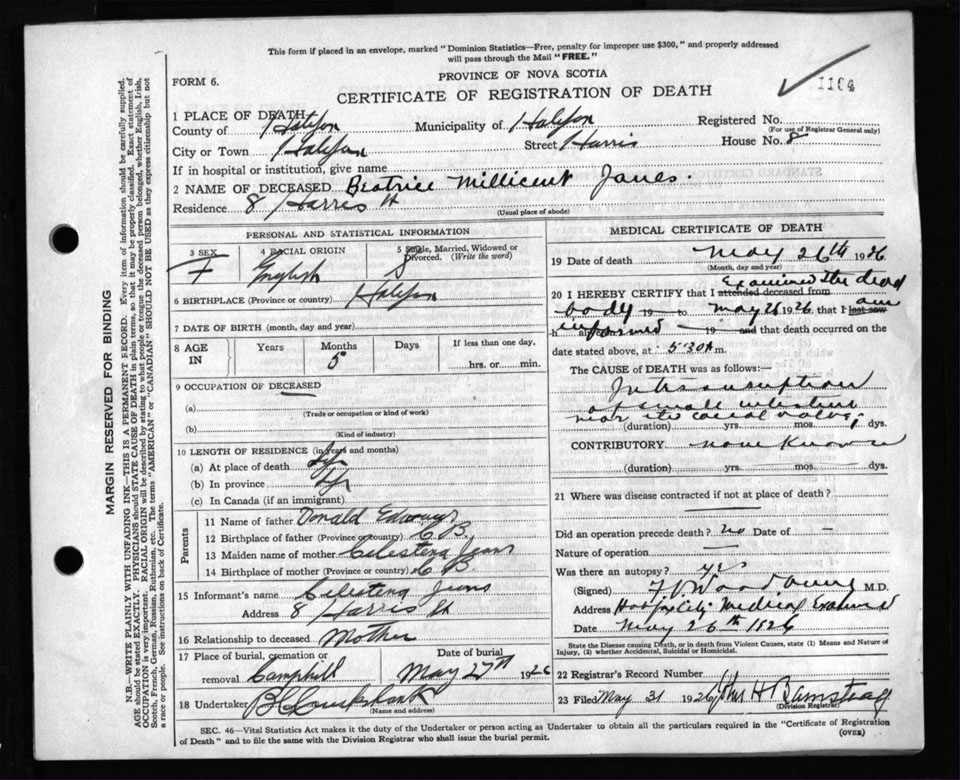 This form if placed in an envelope, marked "Dominion Statistics—Free, penalty for improper use $300," and properly addressed
will pass through the Mail "FREE."
FORM 6.
PROVINCE OF NOVA SCOTIA
1164
CERTIFICATE OF REGISTRATION OF DEATH
MARGIN RESERVED FOR BINDING
N.B.—WRITE PLAINLY WITH UNFADING INK—THIS IS A PERMANENT RECORD. Every item of information should be carefully supplied.
AGE should be stated EXACTLY. PHYSICIANS should STATE CAUSE OF DEATH in plain terms, so that it may be properly classified. Exact statement of
OCCUPATION is very important. RACIAL ORIGIN will be described by stating to what people or tongue the deceased person belonged, whether English, Irish,
Scotch, French, German, Russian, Ruthenian, etc. The terms "AMERICAN" or "CANADIAN" SHOULD NOT BE USED as they express citizenship but not
a race or people. See instructions on back of Certificate.
1 PLACE OF DEATH
County of Halifax Municipality of Halifax Registered No.
(For use of Registrar General only)
City or Town Halifax Street Harris House No. 8
If in hospital or institution, give name
2 NAME OF DECEASED Beatrice Millicent Janes.
Residence 8 Harris St
(Usual place of abode)
PERSONAL AND STATISTICAL INFORMATION
3 SEX F 4 RACIAL ORIGIN English 5 Single, Married, Widowed or Divorced. (Write the word) S
6 BIRTHPLACE (Province or country) Halifax
7 DATE OF BIRTH (month, day and year)
8 AGE IN Years Months 5 Days If less than one day, hrs. or min.
9 OCCUPATION OF DECEASED
(a)
(Trade or occupation or kind of work)
(b)
(Kind of industry)
10 LENGTH OF RESIDENCE (in years and months)
(a) At place of death Life
(b) In province Life
(c) In Canada (if an immigrant)
Parents
11 Name of father Donald Edwards
12 Birthplace of father (Province or country) C B.
13 Maiden name of mother Celestena
14 Birthplace of mother (Province or country) C B.
15 Informant's name Celestena
Address 8 Harris St
16 Relationship to deceased Mother
17 Place of burial, cremation or removal Camphill Date of burial May 27th 1926
18 Undertaker Cruikshank
(Name and address)
MEDICAL CERTIFICATE OF DEATH
19 Date of death May 26th 1926
(Month, day and year)
20 I HEREBY CERTIFY that I attended deceased from Examined the dead
body 19— to May 26 1926 that I last saw am
h informed — 19 — and that death occurred on the
date stated above, at 5.30 A m.
The CAUSE of DEATH was as follows:—
Intussusception
of small intestine
near ileo caecal valve;
(duration) yrs. mos. dys.
CONTRIBUTORY none known
(duration) yrs. mos. dys.
21 Where was disease contracted if not at place of death?
Did an operation precede death? no Date of —
Nature of operation —
Was there an autopsy? yes
(Signed) Woodbury M.D.
Address Halifax City Medical Examiner
Date May 26th 1926
State the Disease causing Death, or in death from Violent Causes, state (1) Means and Nature of
Injury, (2) whether Accidental, Suicidal or Homicidal.
22 Registrar's Record Number
23 Filed May 31 1926
(Division Registrar)
SEC. 46—Vital Statistics Act makes it the duty of the Undertaker or person acting as Undertaker to obtain all the particulars required in the "Certificate of Registration
of Death" and to file the same with the Division Registrar who shall issue the burial permit.
(OVER)